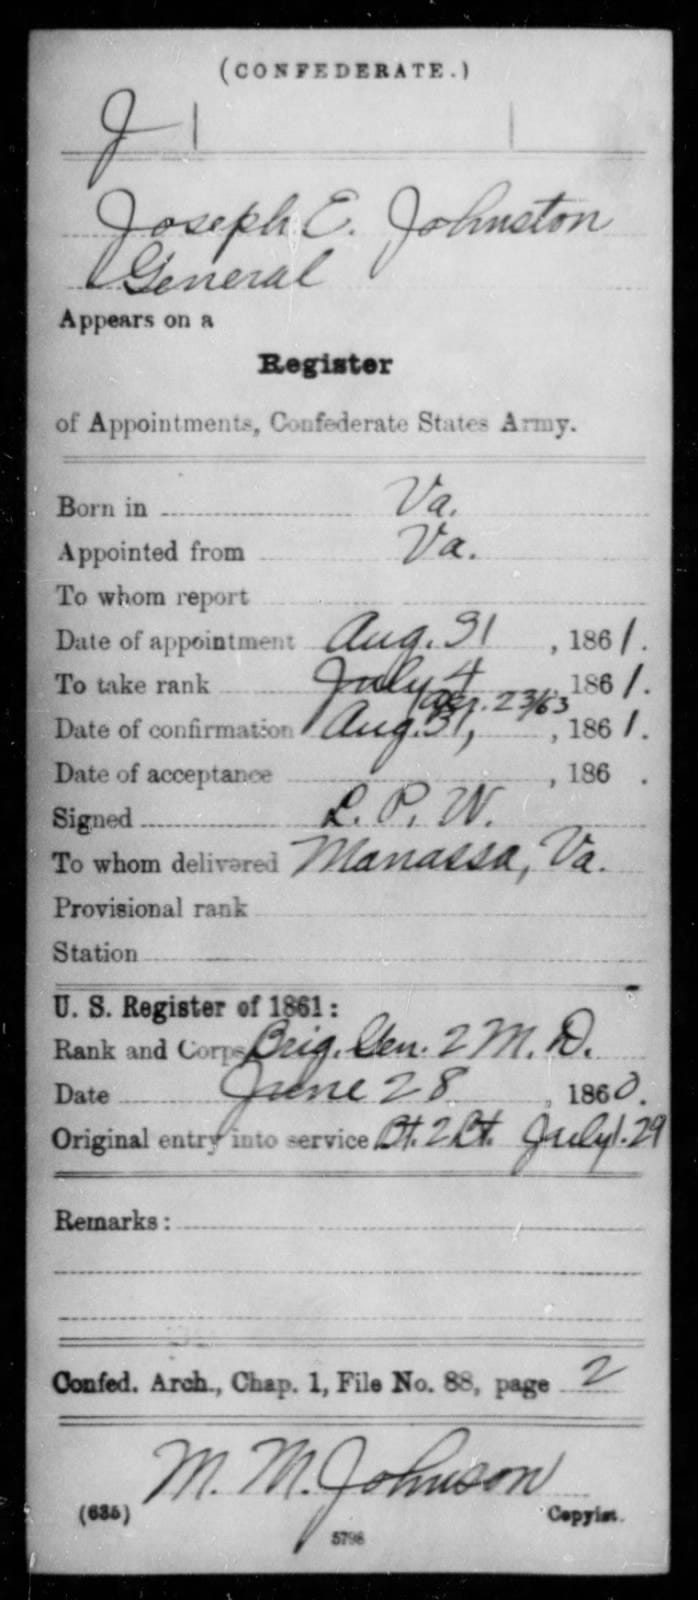 (CONFEDERATE.)
J
Joseph E. Johnston
General
Appears on a
Register
of Appointments, Confederate States Army.
Born in Va.
Appointed from Va.
To whom report
Date of appointment Aug. 31, 1861.
To take rank July 4 1861.
Apr. 23/63
Date of confirmation Aug. 31, , 1861.
Date of acceptance , 186 .
Signed L. P. W.
To whom delivered Manassa, Va.
Provisional rank
Station
U. S. Register of 1861:
Rank and Corps Brig. Gen. 2 M. D.
Date June 28, 1860.
Original entry into service Bt. 2 Lt. July 1. 29
Remarks:
Confed. Arch., Chap. 1, File No. 88, page 2
M. M. Johnson
(635) Copyist.
5798